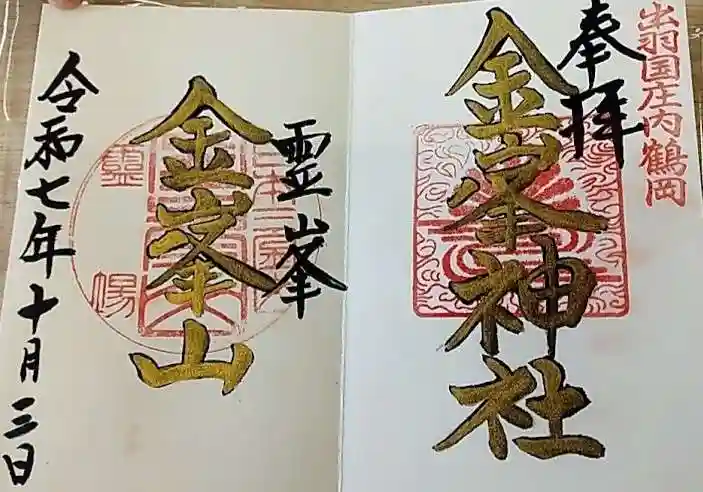 出羽国庄内鶴岡
奉拝
金峯神社
霊峯
金峯山
令和七年十月三日